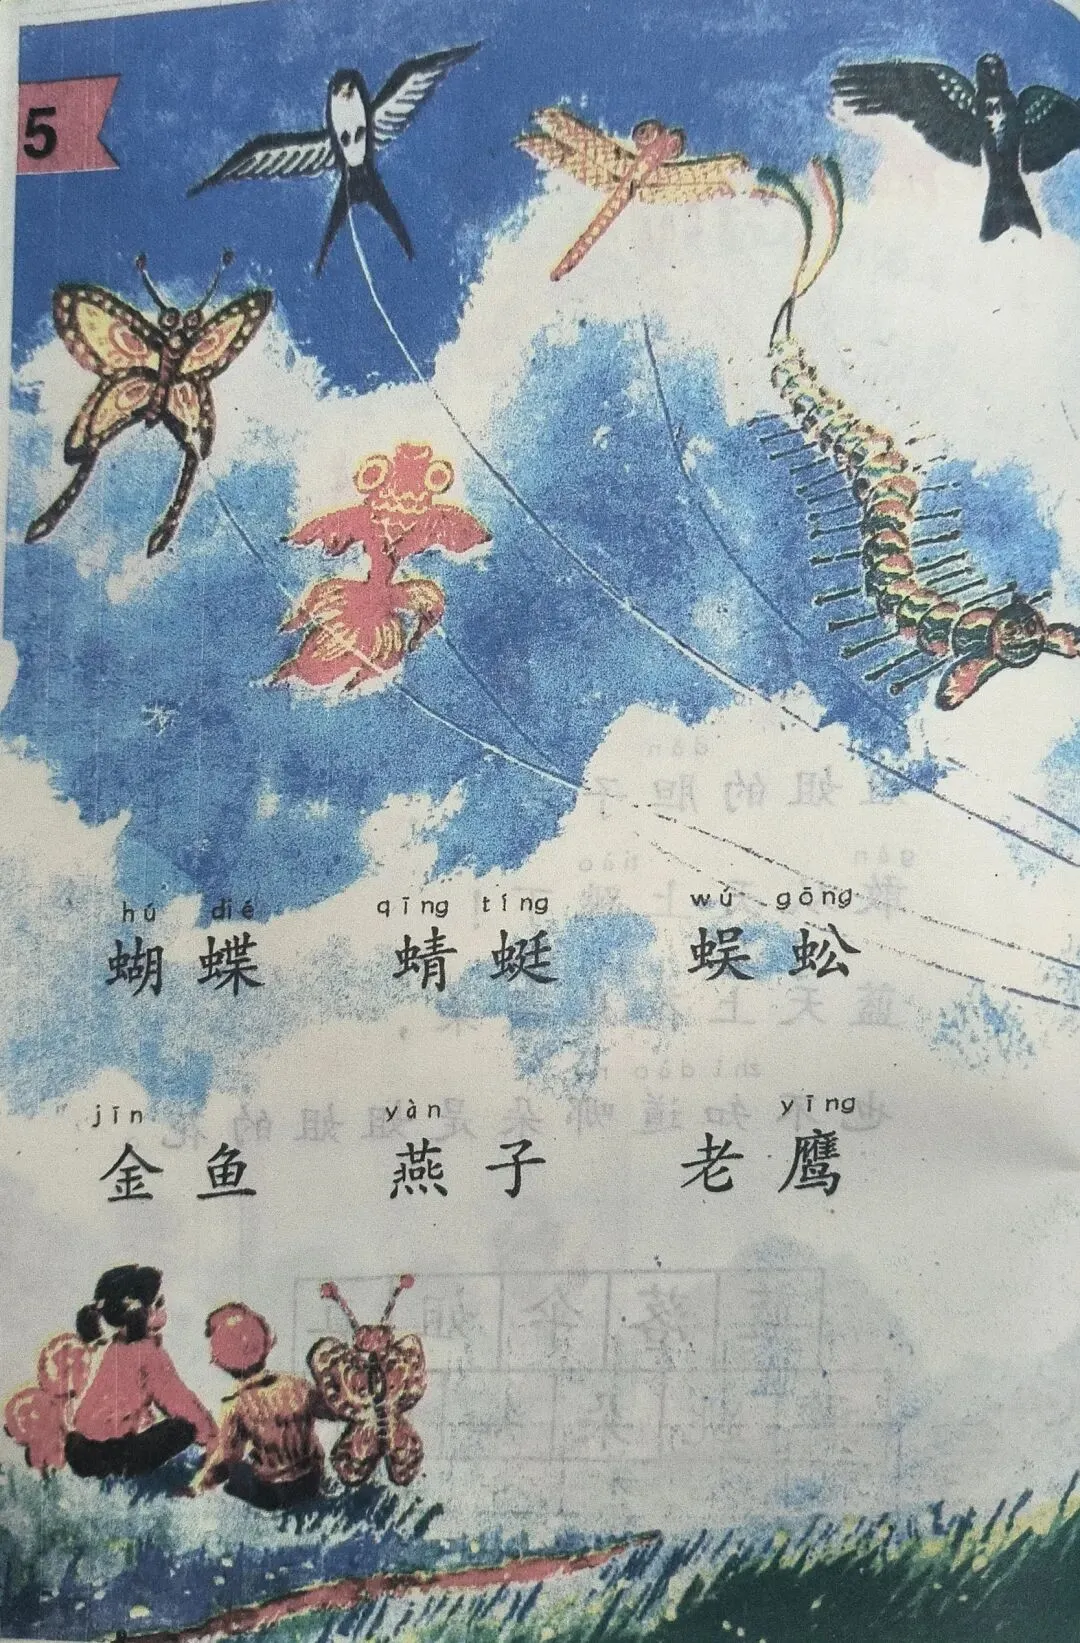 5
hú dié qīng tíng wú gōng
蝴蝶 蜻蜓 蜈蚣
jīn yàn yīng
金鱼 燕子 老鹰